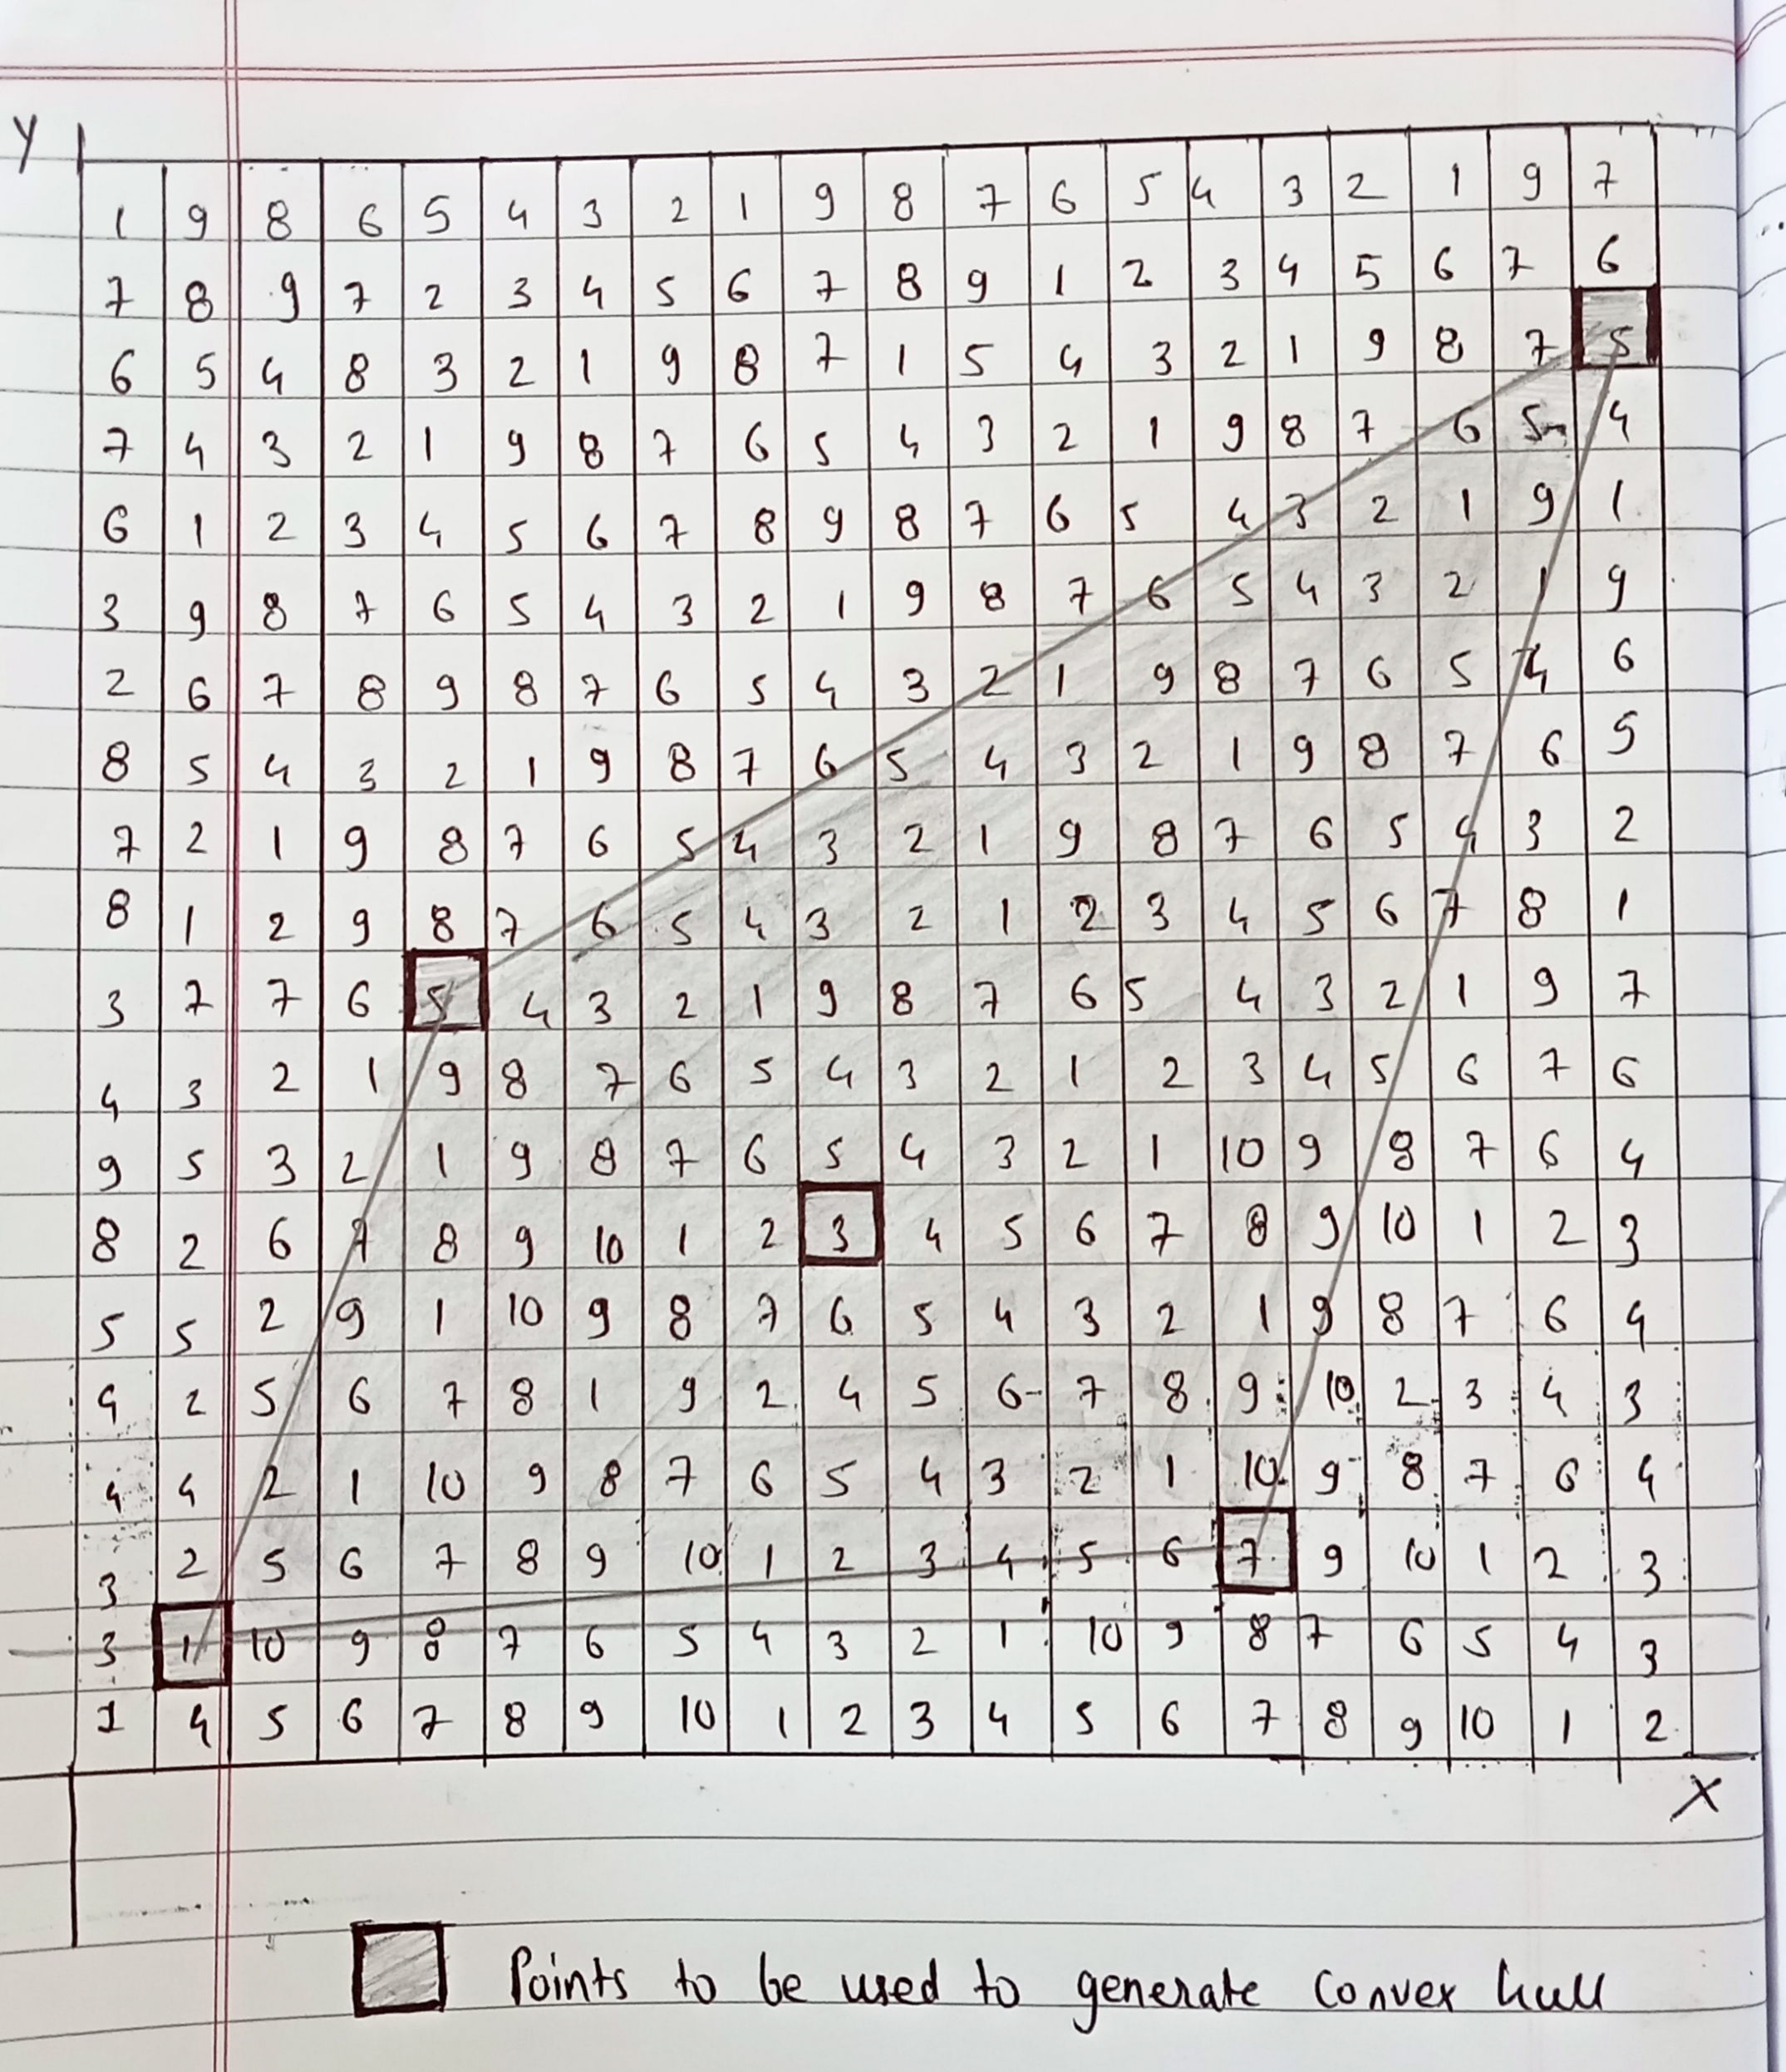 Y
1 9 8 6 5 4 3 2 1 9 8 7 6 5 4 3 2 1 9 7
7 8 9 7 2 3 4 5 6 7 8 9 1 2 3 4 5 6 7 6
6 5 4 8 3 2 1 9 8 7 1 5 4 3 2 1 9 8 7 5
7 4 3 2 1 9 8 7 6 5 4 3 2 1 9 8 7 6 5 4
6 1 2 3 4 5 6 7 8 9 8 7 6 5 4 3 2 1 9 1
3 9 8 7 6 5 4 3 2 1 9 8 7 6 5 4 3 2 1 9
2 6 7 8 9 8 7 6 5 4 3 2 1 9 8 7 6 5 4 6
8 5 4 3 2 1 9 8 7 6 5 4 3 2 1 9 8 7 6 5
7 2 1 9 8 7 6 5 4 3 2 1 9 8 7 6 5 4 3 2
8 1 2 9 8 7 6 5 4 3 2 1 2 3 4 5 6 7 8 1
3 7 7 6 5 4 3 2 1 9 8 7 6 5 4 3 2 1 9 7
4 3 2 1 9 8 7 6 5 4 3 2 1 2 3 4 5 6 7 6
9 5 3 2 1 9 8 7 6 5 4 3 2 1 10 9 8 7 6 4
8 2 6 7 8 9 10 1 2 3 4 5 6 7 8 9 10 1 2 3
5 5 2 9 1 10 9 8 7 6 5 4 3 2 1 9 8 7 6 4
4 2 5 6 7 8 1 9 2 4 5 6 7 8 9 10 2 3 4 3
4 4 2 1 10 9 8 7 6 5 4 3 2 1 10 9 8 7 6 4
3 2 5 6 7 8 9 10 1 2 3 4 5 6 7 9 10 1 2 3
3 1 10 9 8 7 6 5 4 3 2 1 10 9 8 7 6 5 4 3
1 4 5 6 7 8 9 10 1 2 3 4 5 6 7 8 9 10 1 2
X
Points to be used to generate convex hull